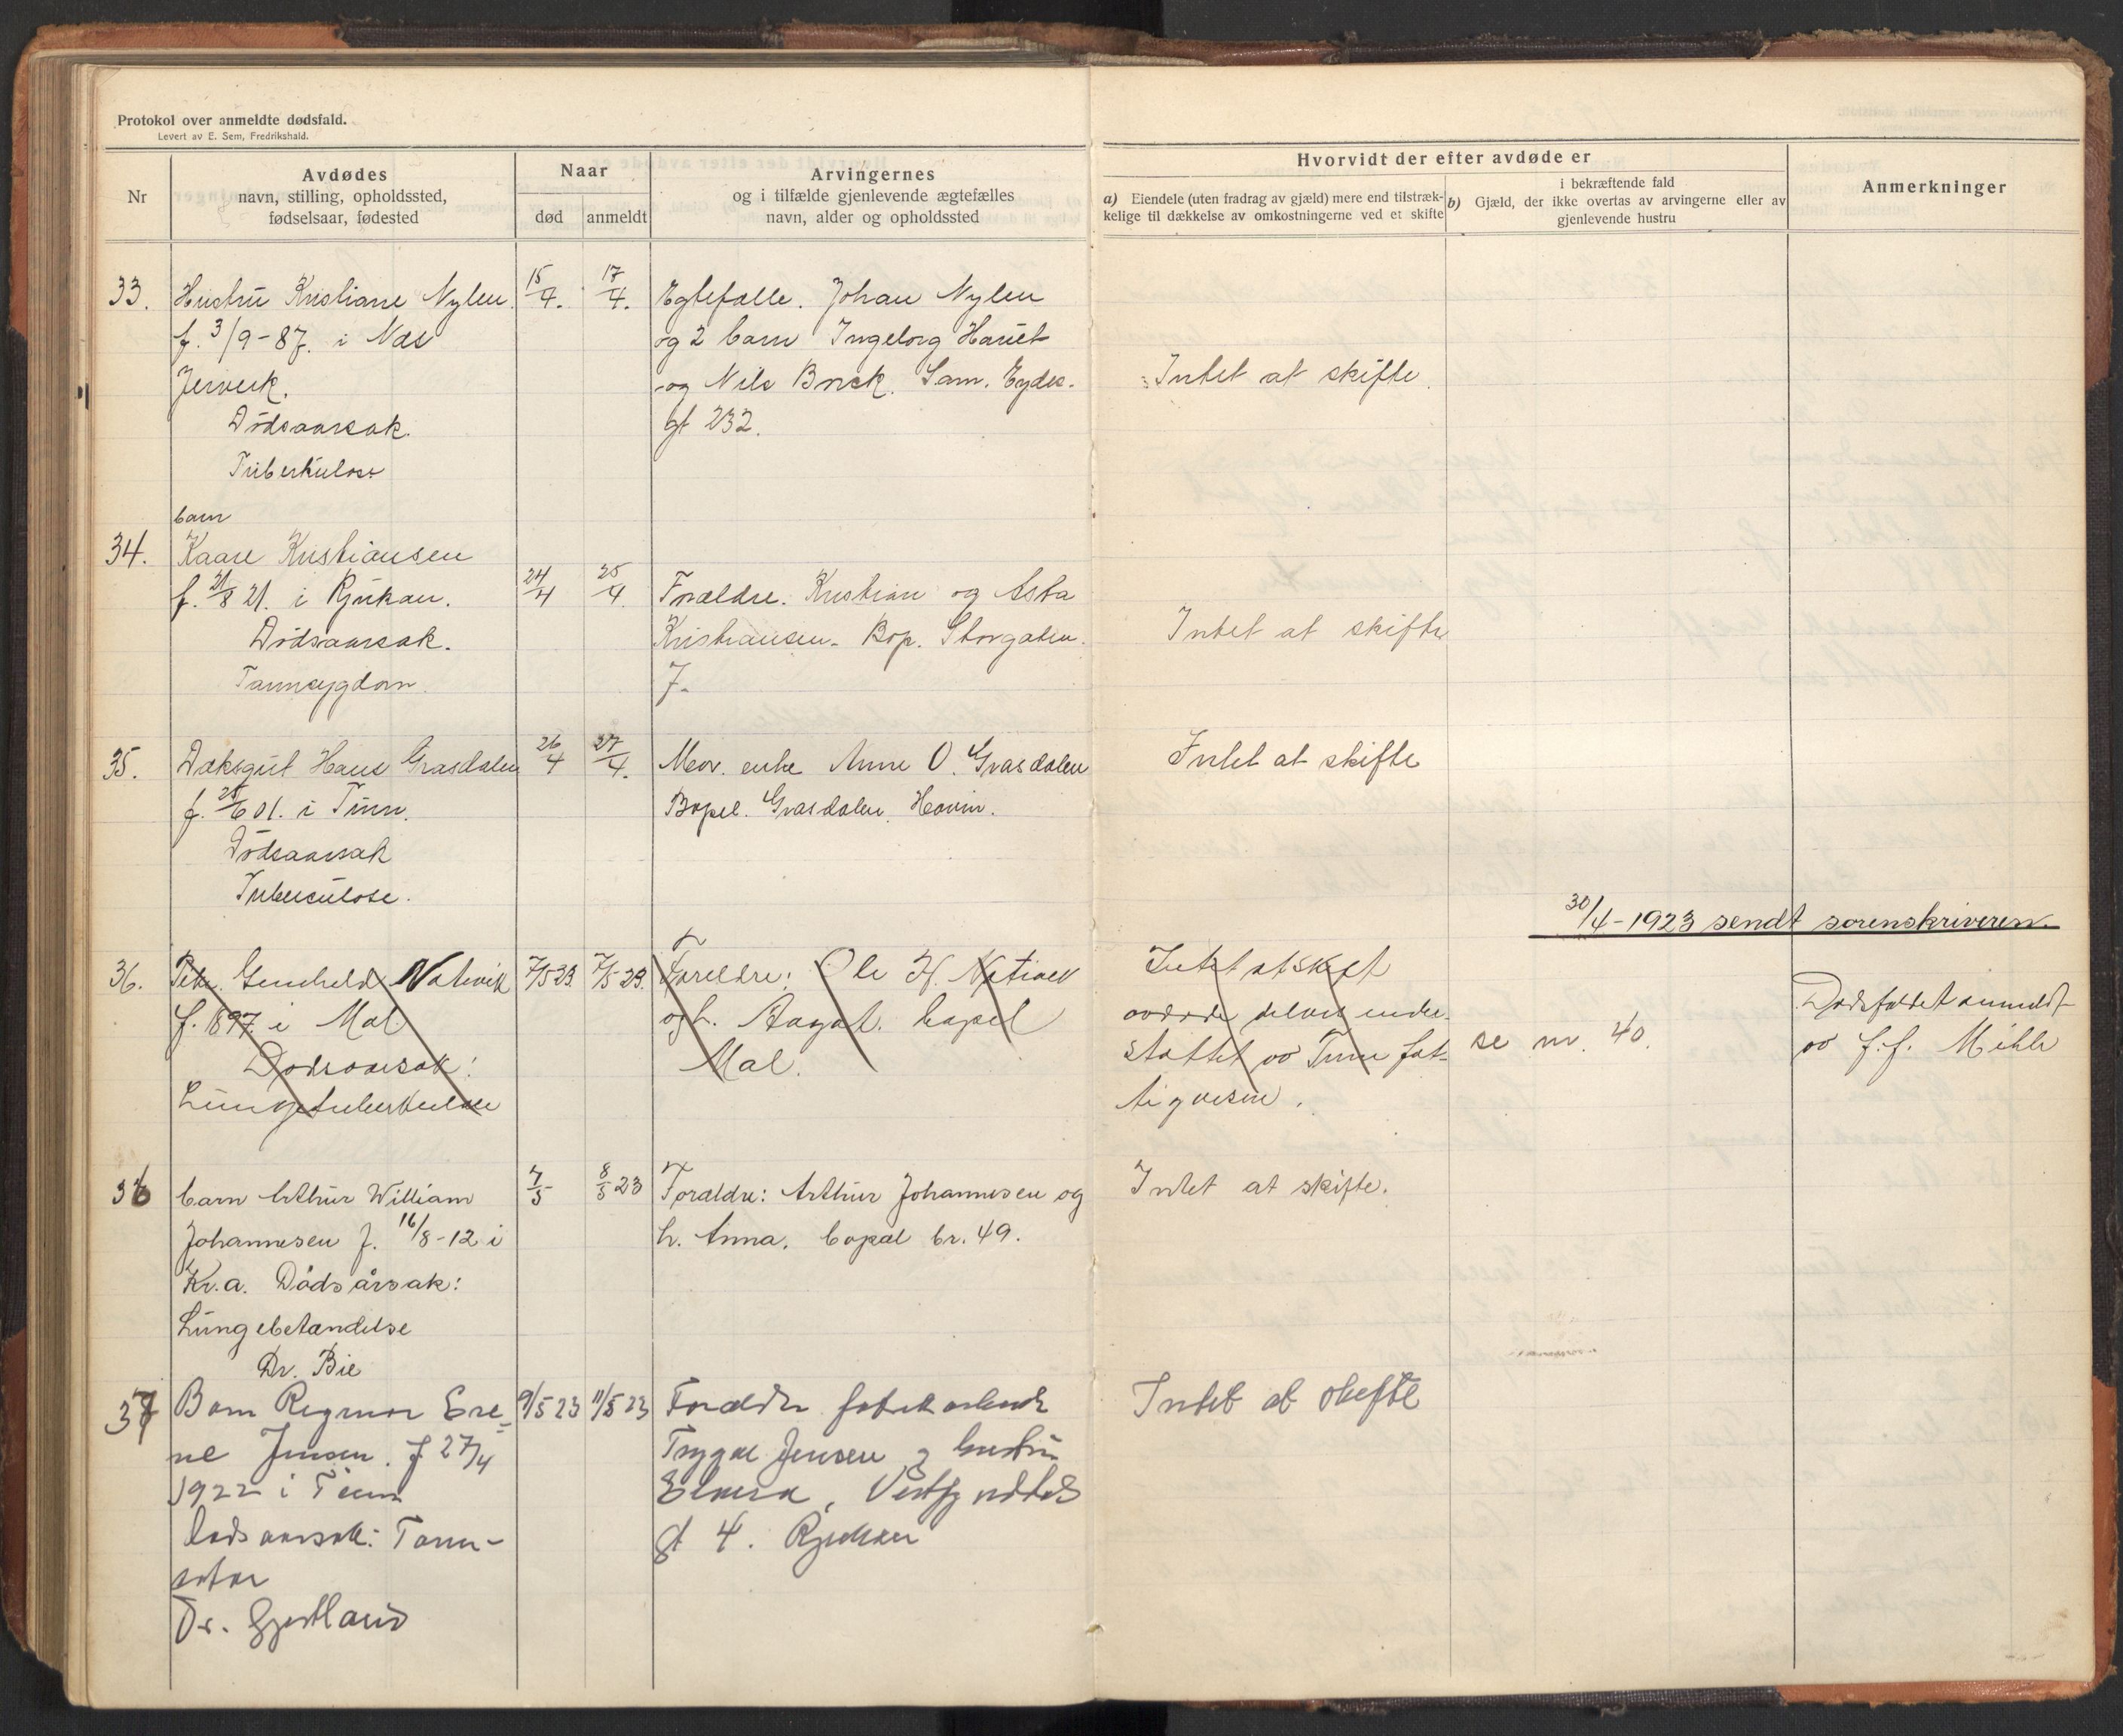 Protokol over anmeldte dødsfald.
Levert av E. Sem, Fredrikshald.
Nr
Avdødes
navn, stilling, opholdssted,
fødselsaar, fødested
Naar
død
anmeldt
Arvingernes
og i tilfælde gjenlevende ægtefælles
navn, alder og opholdssted
Hvorvidt der efter avdøde er
a) Eiendele (uten fradrag av gjæld) mere end tilstræk-
kelige til dækkelse av omkostningerne ved et skifte
i bekræftende fald
b) Gjæld, der ikke overtas av arvingerne eller av
gjenlevende hustru
Anmerkninger
33.
Hustru Kristiane Nylen
f. 3/9-87. i Næs
Jerverk.
Dødsaarsak.
Tuberkulose
15/4.
17/4.
Egtefælle. Johan Nylen
og 2 barn Ingeborg Hariet
og Nils Brick. Sam. Eydes.
gt 232.
Intet at skifte.
barn
34.
Kaare Kristiansen
f. 21/8 21. i Rjukan.
Dødsaarsak.
Tannsygdom.
24/4
25/4
Forældre. Kristian og Asta
Kristiansen. Bop. Storgaten.
7.
Intet at skifte
35.
Hans Grasdalen
f. 25/6 01. i Tinn.
Dødsaarsak
Tuberculose.
26/4
27/4.
Mor. enke Anne O. Grasdalen
Bopel. Grasdalen, Hovin.
Intet at skifte
30/4-1923 sendt sorenskriveren.
36.
Gunhild Natvik
f. 1897 i Mæl
Dødsaarsak:
Lungetuberkulose
7/5 23.
7/5 23.
Foreldre: Ole H.
og h. Aagot. bopel
Mæl.
Intet at skift
avdøde delvis under-
støttet av Tinn fat-
tigvesen.
se nr. 40.
Dødsfaldet anmeldt
av f.f. Mæhle
36
barn Arthur William
Johannesen f. 16/8-12 i
Kr.a. Dødsårsak:
Lungebetændelse
Dr. Bie
7/5
8/5 23
Foraldre: Arthur Johannesen og
h. Anna. bopæl br. 49.
Intet at skifte.
37
Barn Regmor Ere-
ne Jensen. f 27/4
1922 i Tinn
Dødsaarsak: Tann-
Dr. Gjestland
9/5 23
11/5 23
Foraldre
Trygve Jensen og hustru
gt 4. Rjukan
Intet at skifte